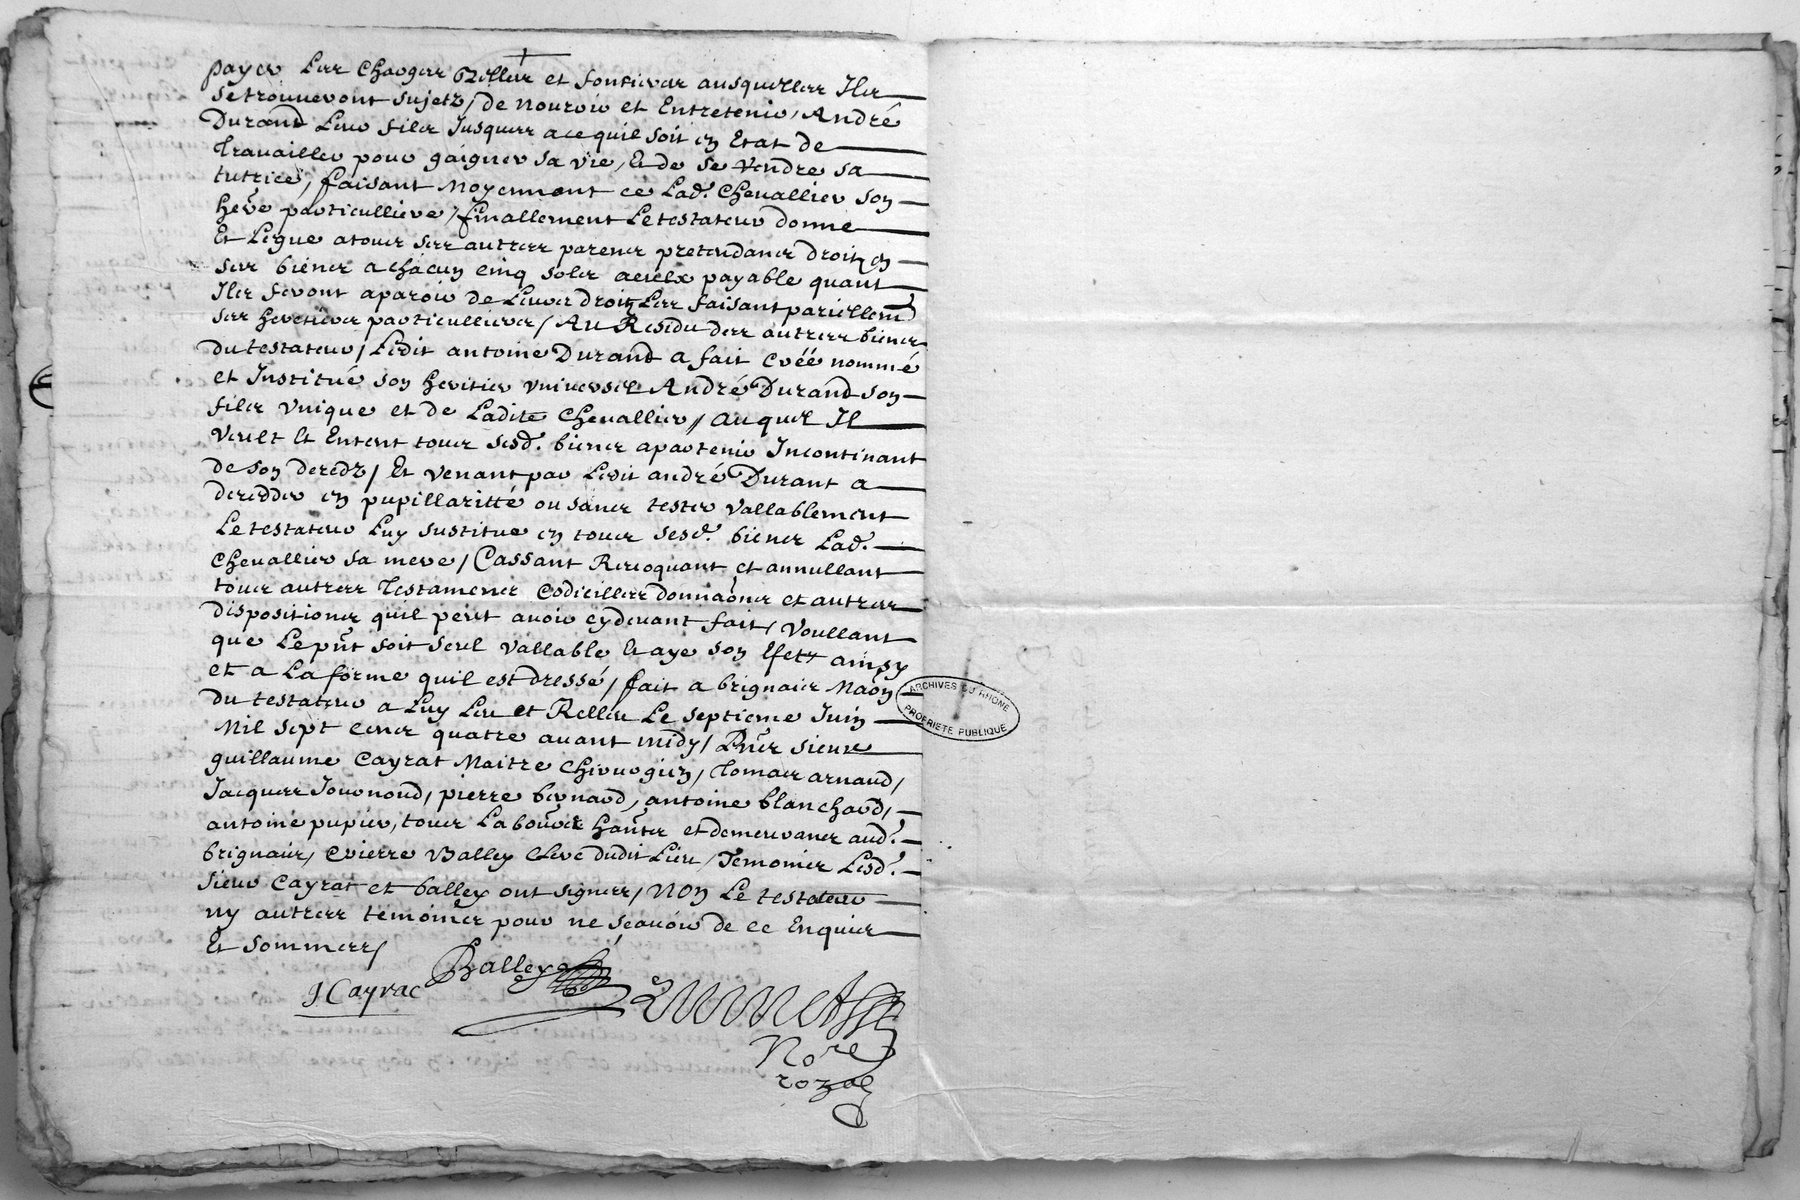 payer Les Charges Reelles et fonsieres ausquelles Ils
se trouueront sujetz, de nourrir et Entretenir, André
Durand Leur fils Jusques a ce quil soit en Etat de
Trauailler pour gaigner sa vie, Et de se rendre sa
tutrice, faisant Moyennant ce Lad. Cheuallier son
here particulliere, finallement Le testateur donne
Et Legue a tous ses autres parens pretendans droitz en
ses biens a châcun cinq sols a eulx payable quant
Ils feront aparoir de Leurs droitz Les faisant pariellemt
ses heretiers particulliers, Au Residu des autres biens
du testateur, Ledit antoine Durand a fait créé nommé
et Institué son heritier vniuersel André Durand son
fils vnique et de Ladite Cheuallier, auquel Il
veult Et Entent tous sesd. biens apartenir Incontinant
de son decedz, Et venant par Ledit andré Durant a
decedder en pupillaritté ou sans tester vallablement
Le testateur Luy sustitue en tous sesd. biens Lad.
Cheuallier sa mere, Cassant Reuoquant et annullant
tous autres Testamens Codicilles donnaõns et autres
dispositions quil peut auoir cydeuant fait, Voullant
que Le pñt soit seul vallable Et aye son Efett ainsy
et a La forme quil est dressé, fait a brignais Maõn
du testateur a Luy Leu et Relleu Le septieme Juin
Mil sept cens quatre auant midy, Pñs sieur
guillaume Cayrat Maitre Chirurgien, Tomas arnaud,
Jacques Journoud, pierre bernard, antoine blanchard,
antoine pupier, tous Laboûrs hañs et demeurans aud.
brignais, Cpierre Balley Clerc dudit Lieu, Temoins Lesd.
sieur Cayrat et balley ont signés, NON Le testateur
ny autres temoins pour ne sçauoir de ce Enquis
Et Sommes,
Balley
gCayrac
Nore
rozal
ARCHIVES DU RHONE
PROPRIETE PUBLIQUE